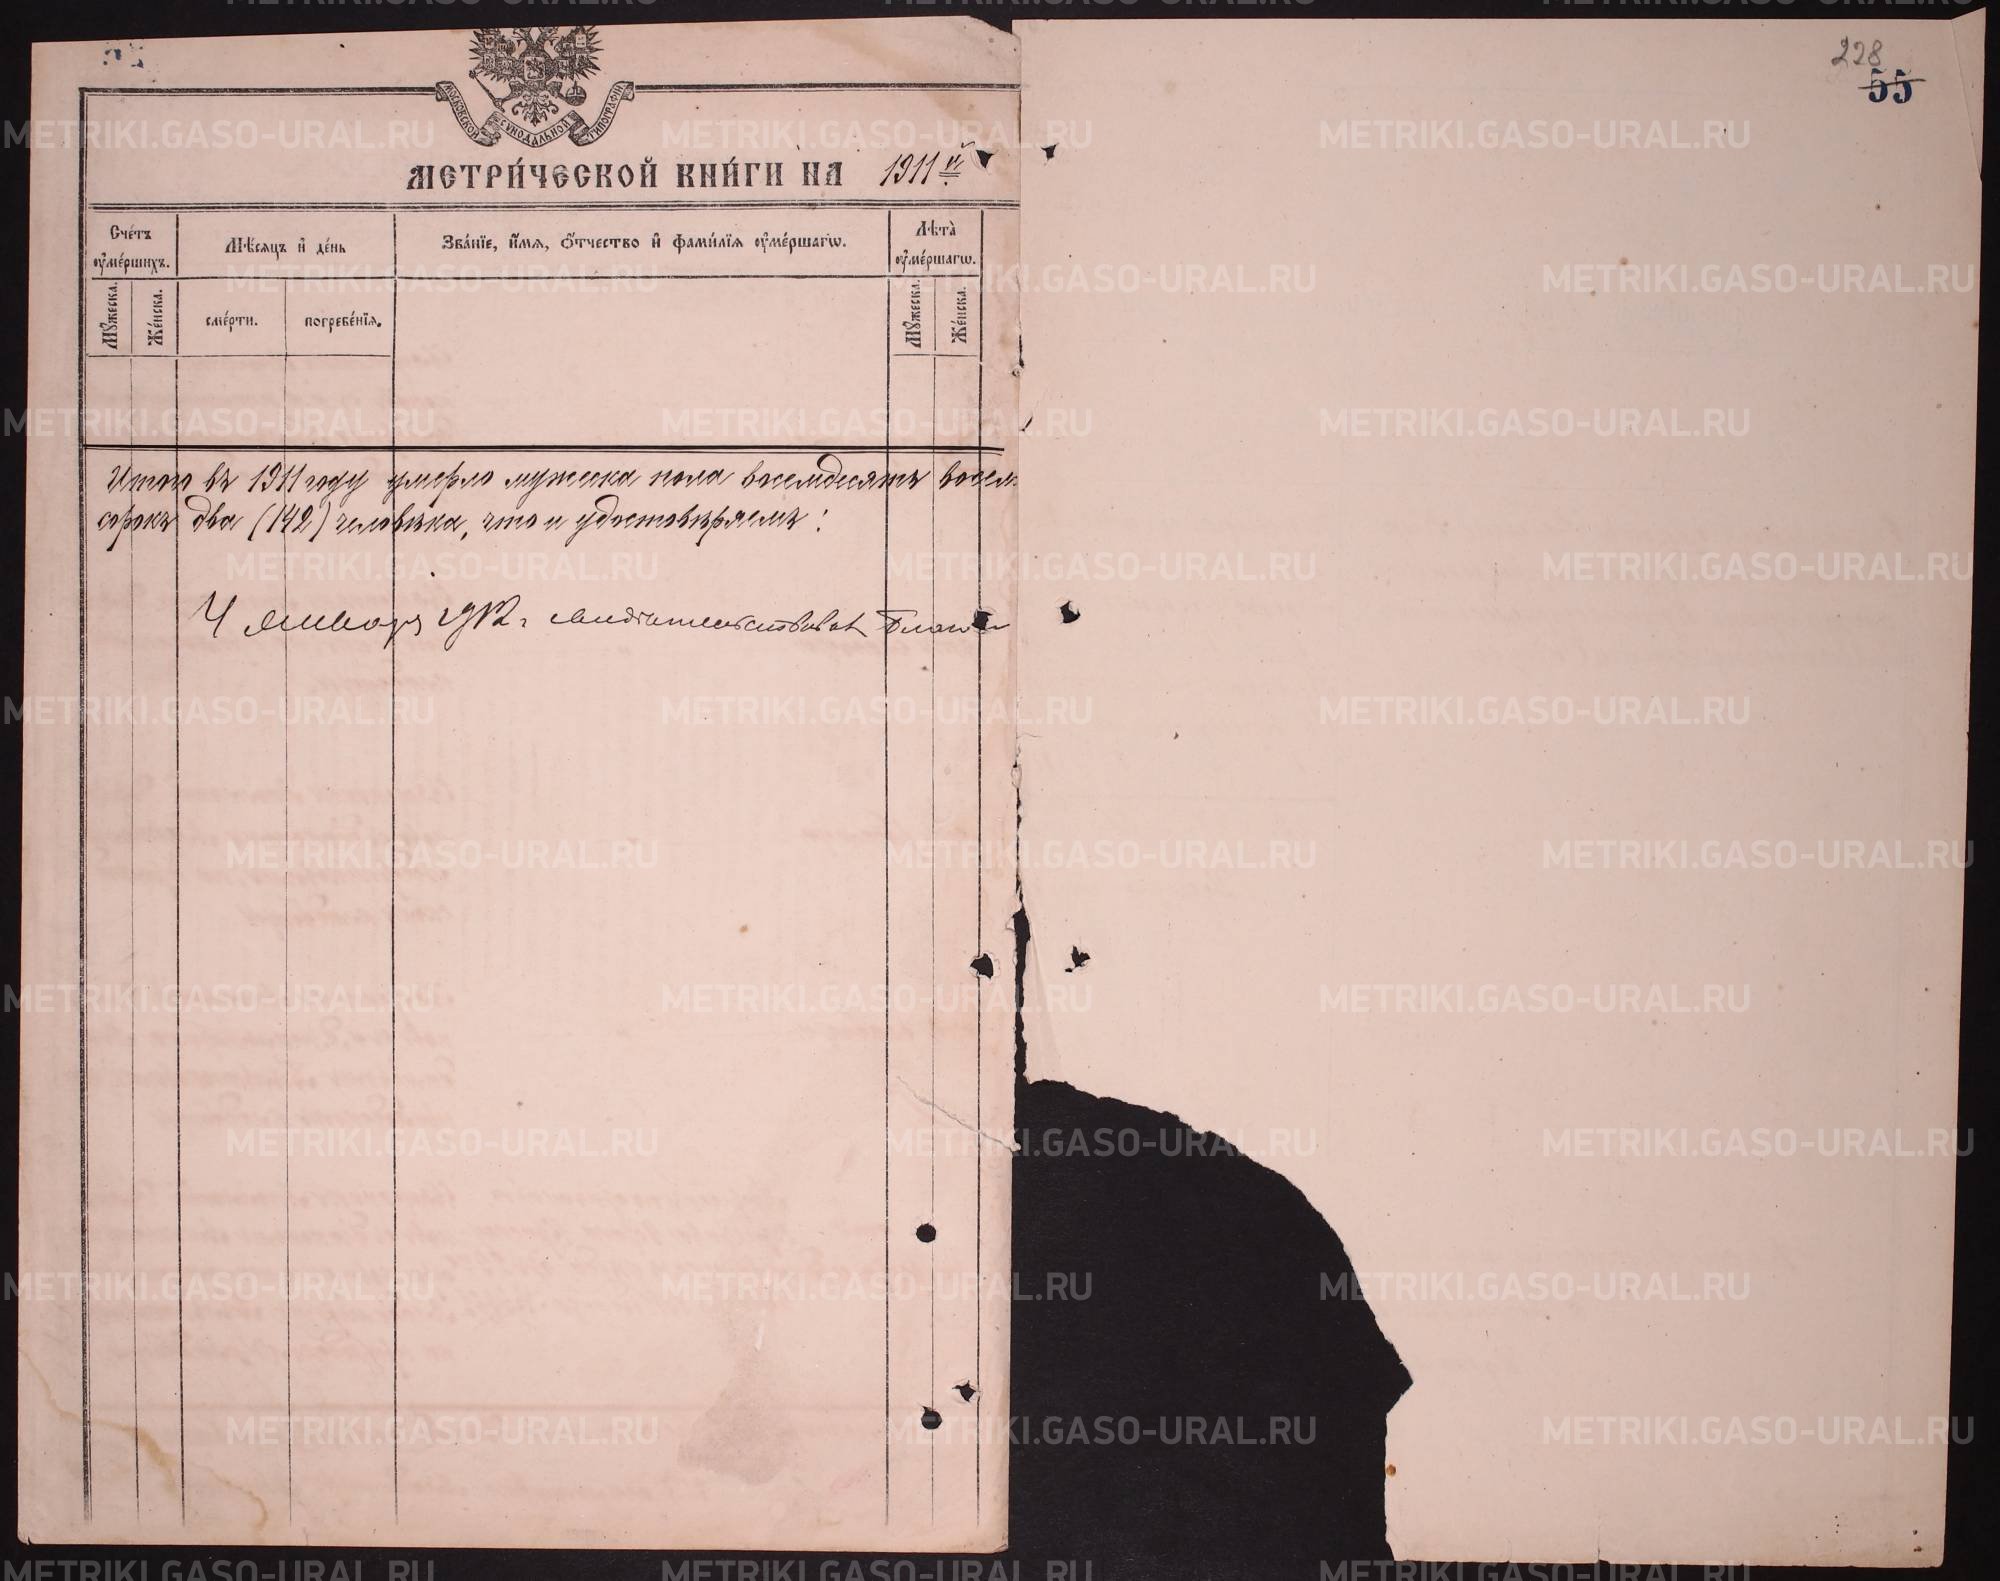 228
55
МОСКОВСКОЙ СѴНОДАЛЬНОЙ ТИПОГРАФІИ
МЕТРИ́ЧЕСКОЙ КНИ́ГИ НА 1911 й
Сче́тъ ᲂу҆ме́ршихъ.
Мѣ́сяцъ и҆ де́нь
Зва́нїе, и҆́мѧ, ѻ҆́тчество и҆ фами́лїѧ ᲂу҆ме́ршагѡ.
Лѣта̀ ᲂу҆ме́ршагѡ.
Мꙋ́жеска.
Же́нска.
сме́рти.
погребе́нїѧ.
Мꙋ́жеска.
Же́нска.
Итого въ 1911 году умерло мужеска пола восемдесятъ восем
сорокъ два (142) человѣка, что и удостовѣряемъ:
Ч января 1912 г. свидѣтельствовалъ
METRIKI.GASO-URAL.RU